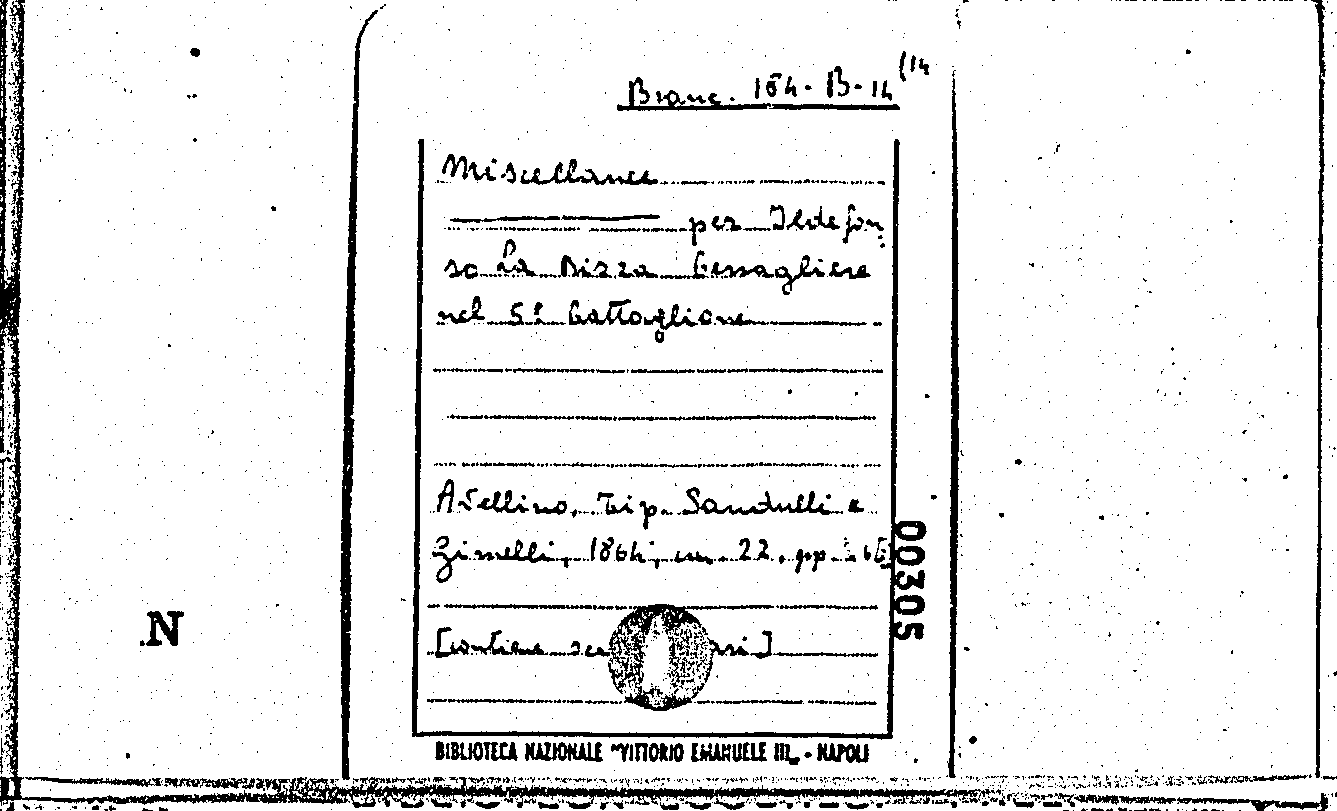 Branc. 164-B-14 (14
Miscellanea
per Ildefon
so La Bizza bersagliere
nel 5º battaglione
Avellino, Tip. Sandulli e
Gimelli, 1864, cm. 22, pp.
[contiene
00305
N
BIBLIOTECA NAZIONALE "VITTORIO EMANUELE III" - NAPOLI